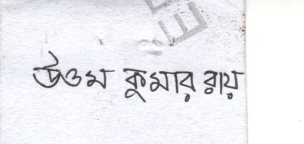 উত্তম কুমার রায়